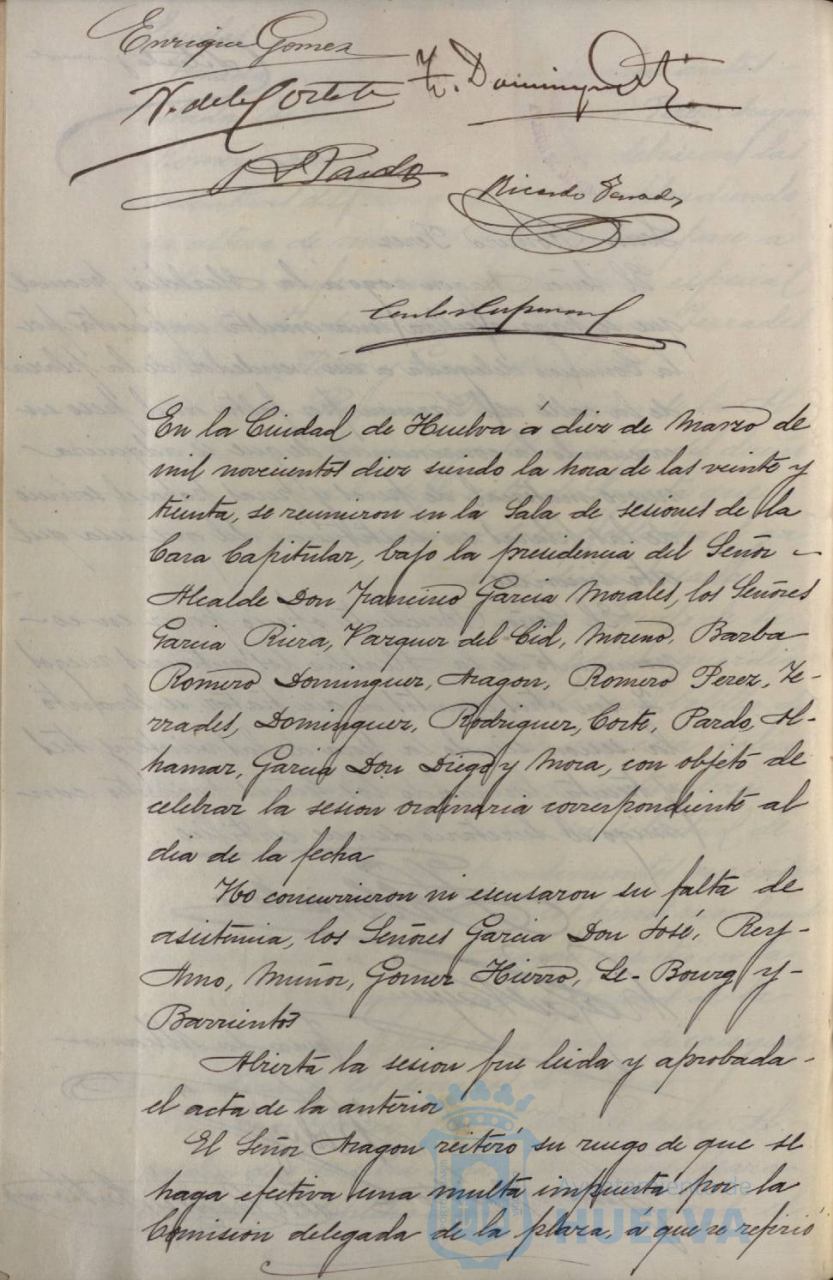 Enrique Gomez
N. de la Corte F. Dominguez
Pardo
Ricardo Terrades
En la Ciudad de Huelva á diez de Marzo de
mil novecientos diez siendo la hora de las veinte y
treinta, se reunieron en la Sala de sesiones de la
Casa Capitular, bajo la presidencia del Señor
Alcalde Don Francisco Garcia Morales, los Señores
Garcia Riera, Vazquez del Cid, Moreno, Barba
Romero Dominguez, Aragon, Romero Perez, Te-
rrades, Dominguez, Rodriguez, Corte, Pardo, Al-
hamar, Garcia Don Diego y Mora, con objeto de
celebrar la sesion ordinaria correspondiente al
dia de la fecha
No concurrieron ni escusaron su falta de
asistencia, los Señores Garcia Don José, Rey-
Amo, Muñoz, Gomez Hierro, Le-Bourg y-
Barrientos
Abierta la sesion fue leida y aprobada-
el acta de la anterior
El Señor Aragon reiteró su ruego de que se
haga efectiva una multa impuesta por la
Comision delegada de la plaza, á que se refirió
Ayuntamiento de
HUELVA